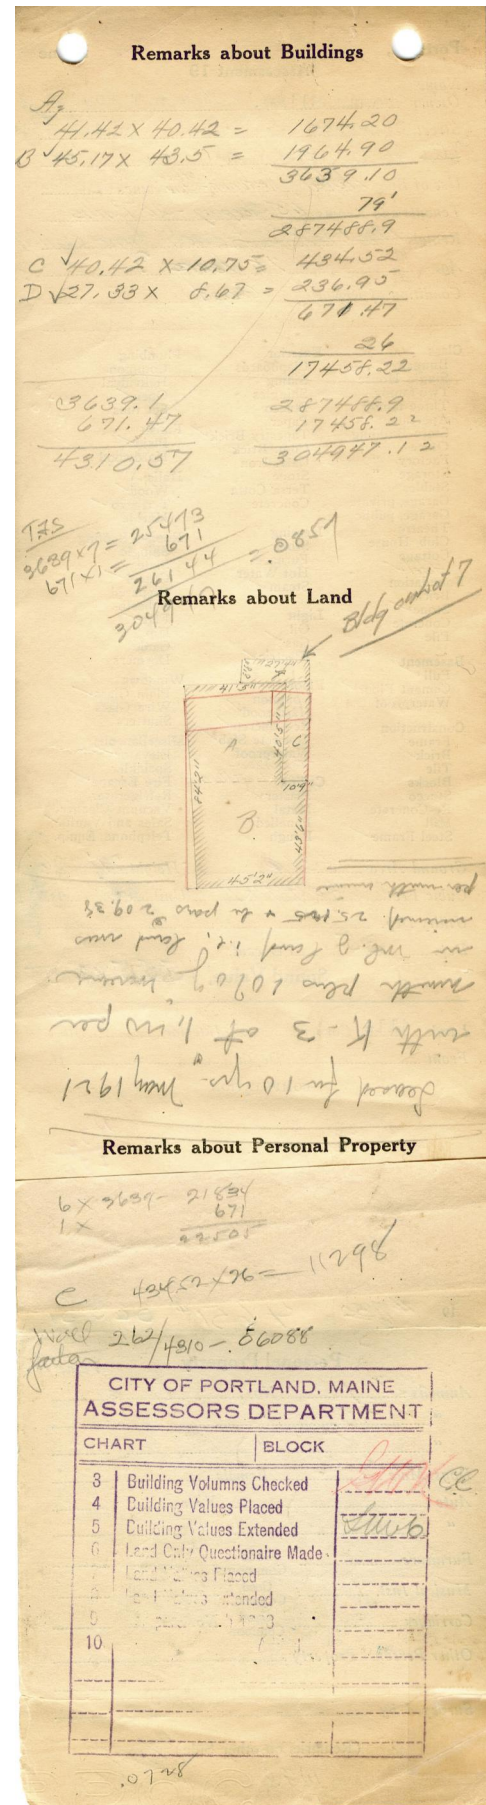 Remarks about Buildings
A
41.42 X 40.42 = 1674.20
B 45.17 X 43.5 = 1964.90
3639.10
79'
287488.9
C 40.42 X 10.75 = 434.52
D 27.33 X 8.67 = 236.95
671.47
26
17458.22
3639.1 287488.9
671.47 17458.22
4310.57 304947.12
3639 x 7 = 25473
671 x 1 = 671
26144 = .0857
3049
Remarks about Land
Bldg 7
A
C
B
10'9"
45'2"
Leased for 10 yrs. May 1921
with K-3 at per
month plus 10% of increase
in of land i.e. land was
per month more
Remarks about Personal Property
6 x 3639 - 21834
1 x 671
22505
C 434.52 X 26 = 11298
Wall
factor 262/4310 - .06088
CITY OF PORTLAND, MAINE
ASSESSORS DEPARTMENT
CHART BLOCK
3 Building Volumns Checked C.C.
4 Building Values Placed
5 Building Values Extended
6 Land Only Questionaire Made
7 Land Values Placed
8 Land Values Extended
9
10
.0728